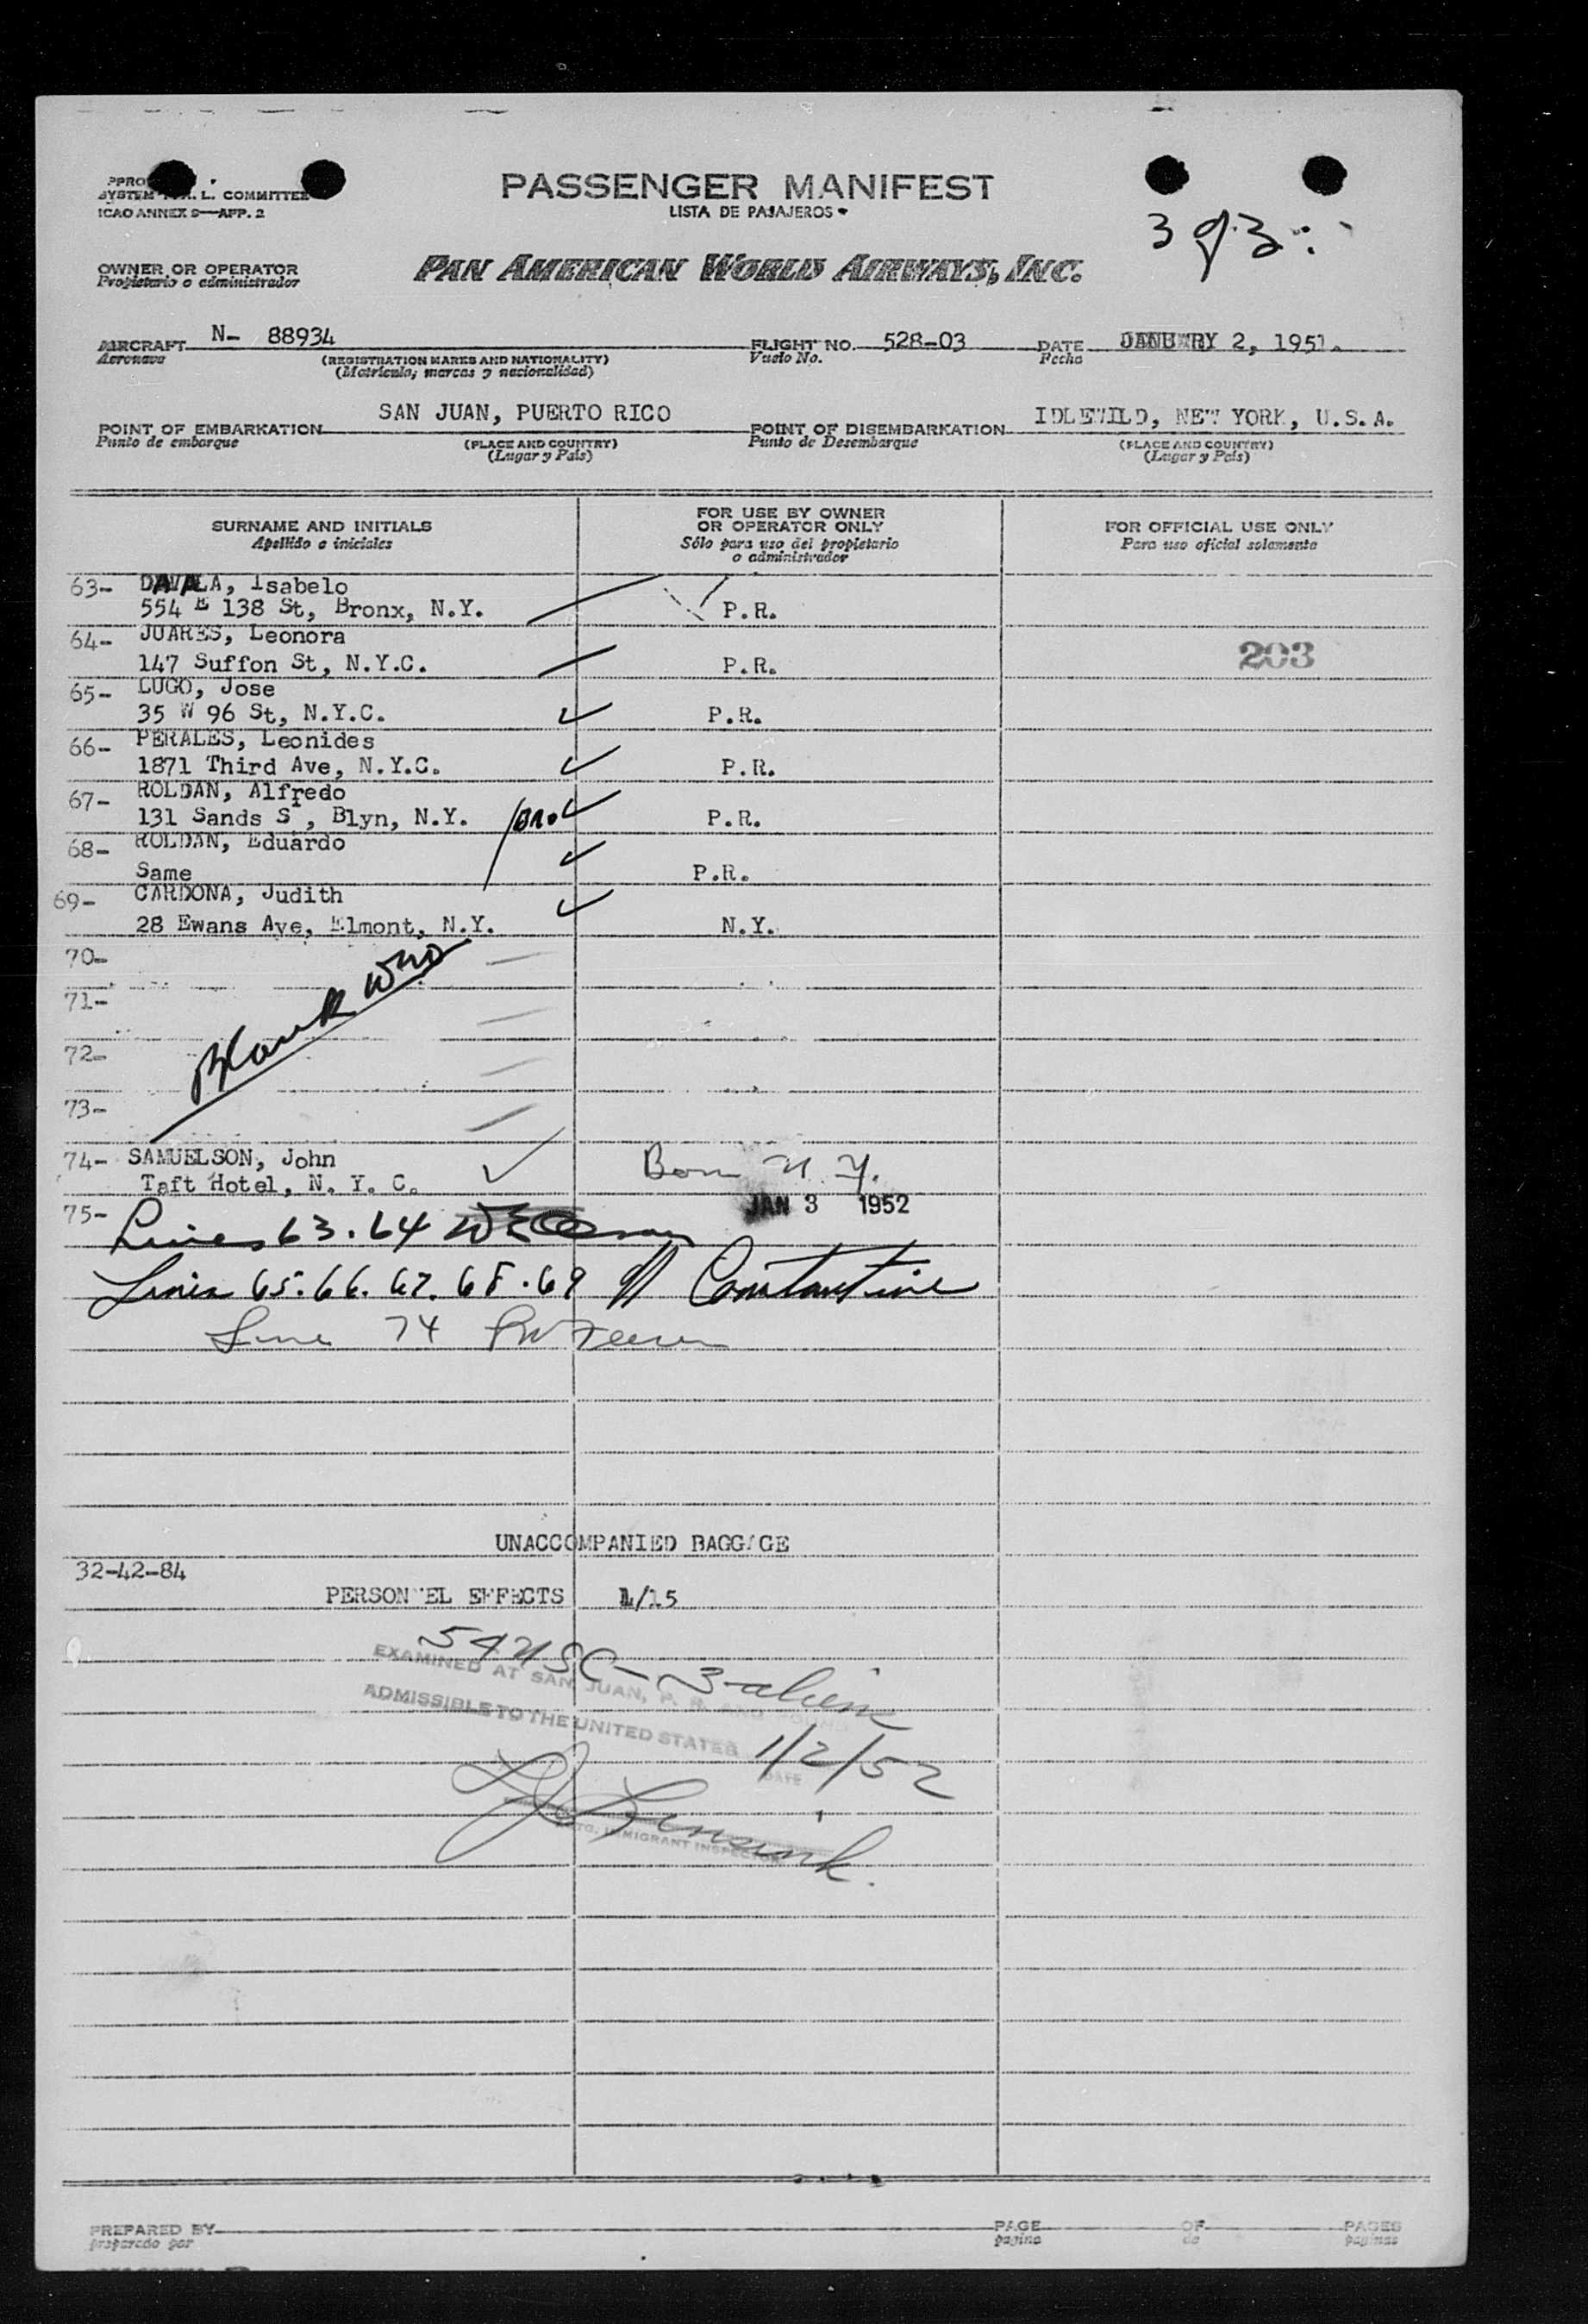 PASSENGER MANIFEST
LISTA DE PASAJEROS
L. COMMITTEE
ICAO ANNEX 9—APP. 2
OWNER OR OPERATOR
Propietario o administrador
PAN AMERICAN WORLD AIRWAYS, INC.
AIRCRAFT N- 88934
Aeronave
(REGISTRATION MARKS AND NATIONALITY)
(Matricula, marcas y nacionalidad)
FLIGHT NO. 528-03
Vuelo No.
DATE JANUARY 2, 1951.
Fecha
POINT OF EMBARKATION SAN JUAN, PUERTO RICO
Punto de embarque
(PLACE AND COUNTRY)
(Lugar y País)
POINT OF DISEMBARKATION IDLEWILD, NEW YORK, U.S.A.
Punto de Desembarque
(PLACE AND COUNTRY)
(Lugar y País)
SURNAME AND INITIALS
Apellido e iniciales
FOR USE BY OWNER
OR OPERATOR ONLY
Sólo para uso del propietario
o administrador
FOR OFFICIAL USE ONLY
Para uso oficial solamente
63- DAVALA, Isabelo
554 E 138 St, Bronx, N.Y. P.R.
64- JUARES, Leonora
203
147 Suffon St, N.Y.C. P.R.
65- LUGO, Jose
35 W 96 St, N.Y.C. P.R.
66- PERALES, Leonides
1871 Third Ave, N.Y.C. P.R.
67- ROLDAN, Alfredo
131 Sands S , Blyn, N.Y. Bro. P.R.
68- ROLDAN, Eduardo
Same P.R.
69- CARDONA, Judith
28 Ewans Ave, Elmont, N.Y. N.Y.
70-
71-
Blank
72-
73-
74- SAMUELSON, John
Born N.Y.
Taft Hotel, N. Y. C.
JAN 3 1952
75-
Lines 63. 64
Lines 65. 66. 67. 68. 69 Constantine
Line 74
UNACCOMPANIED BAGGAGE
32-42-84
PERSONNEL EFFECTS 1/15
54 USC - 3 aliens
EXAMINED AT SAN JUAN, P. R. AND FOUND
ADMISSIBLE TO THE UNITED STATES
1/2/52
DATE
IMMIGRANT INSPECTOR
PREPARED BY
preparado por
PAGE OF PAGES
pagina de paginas